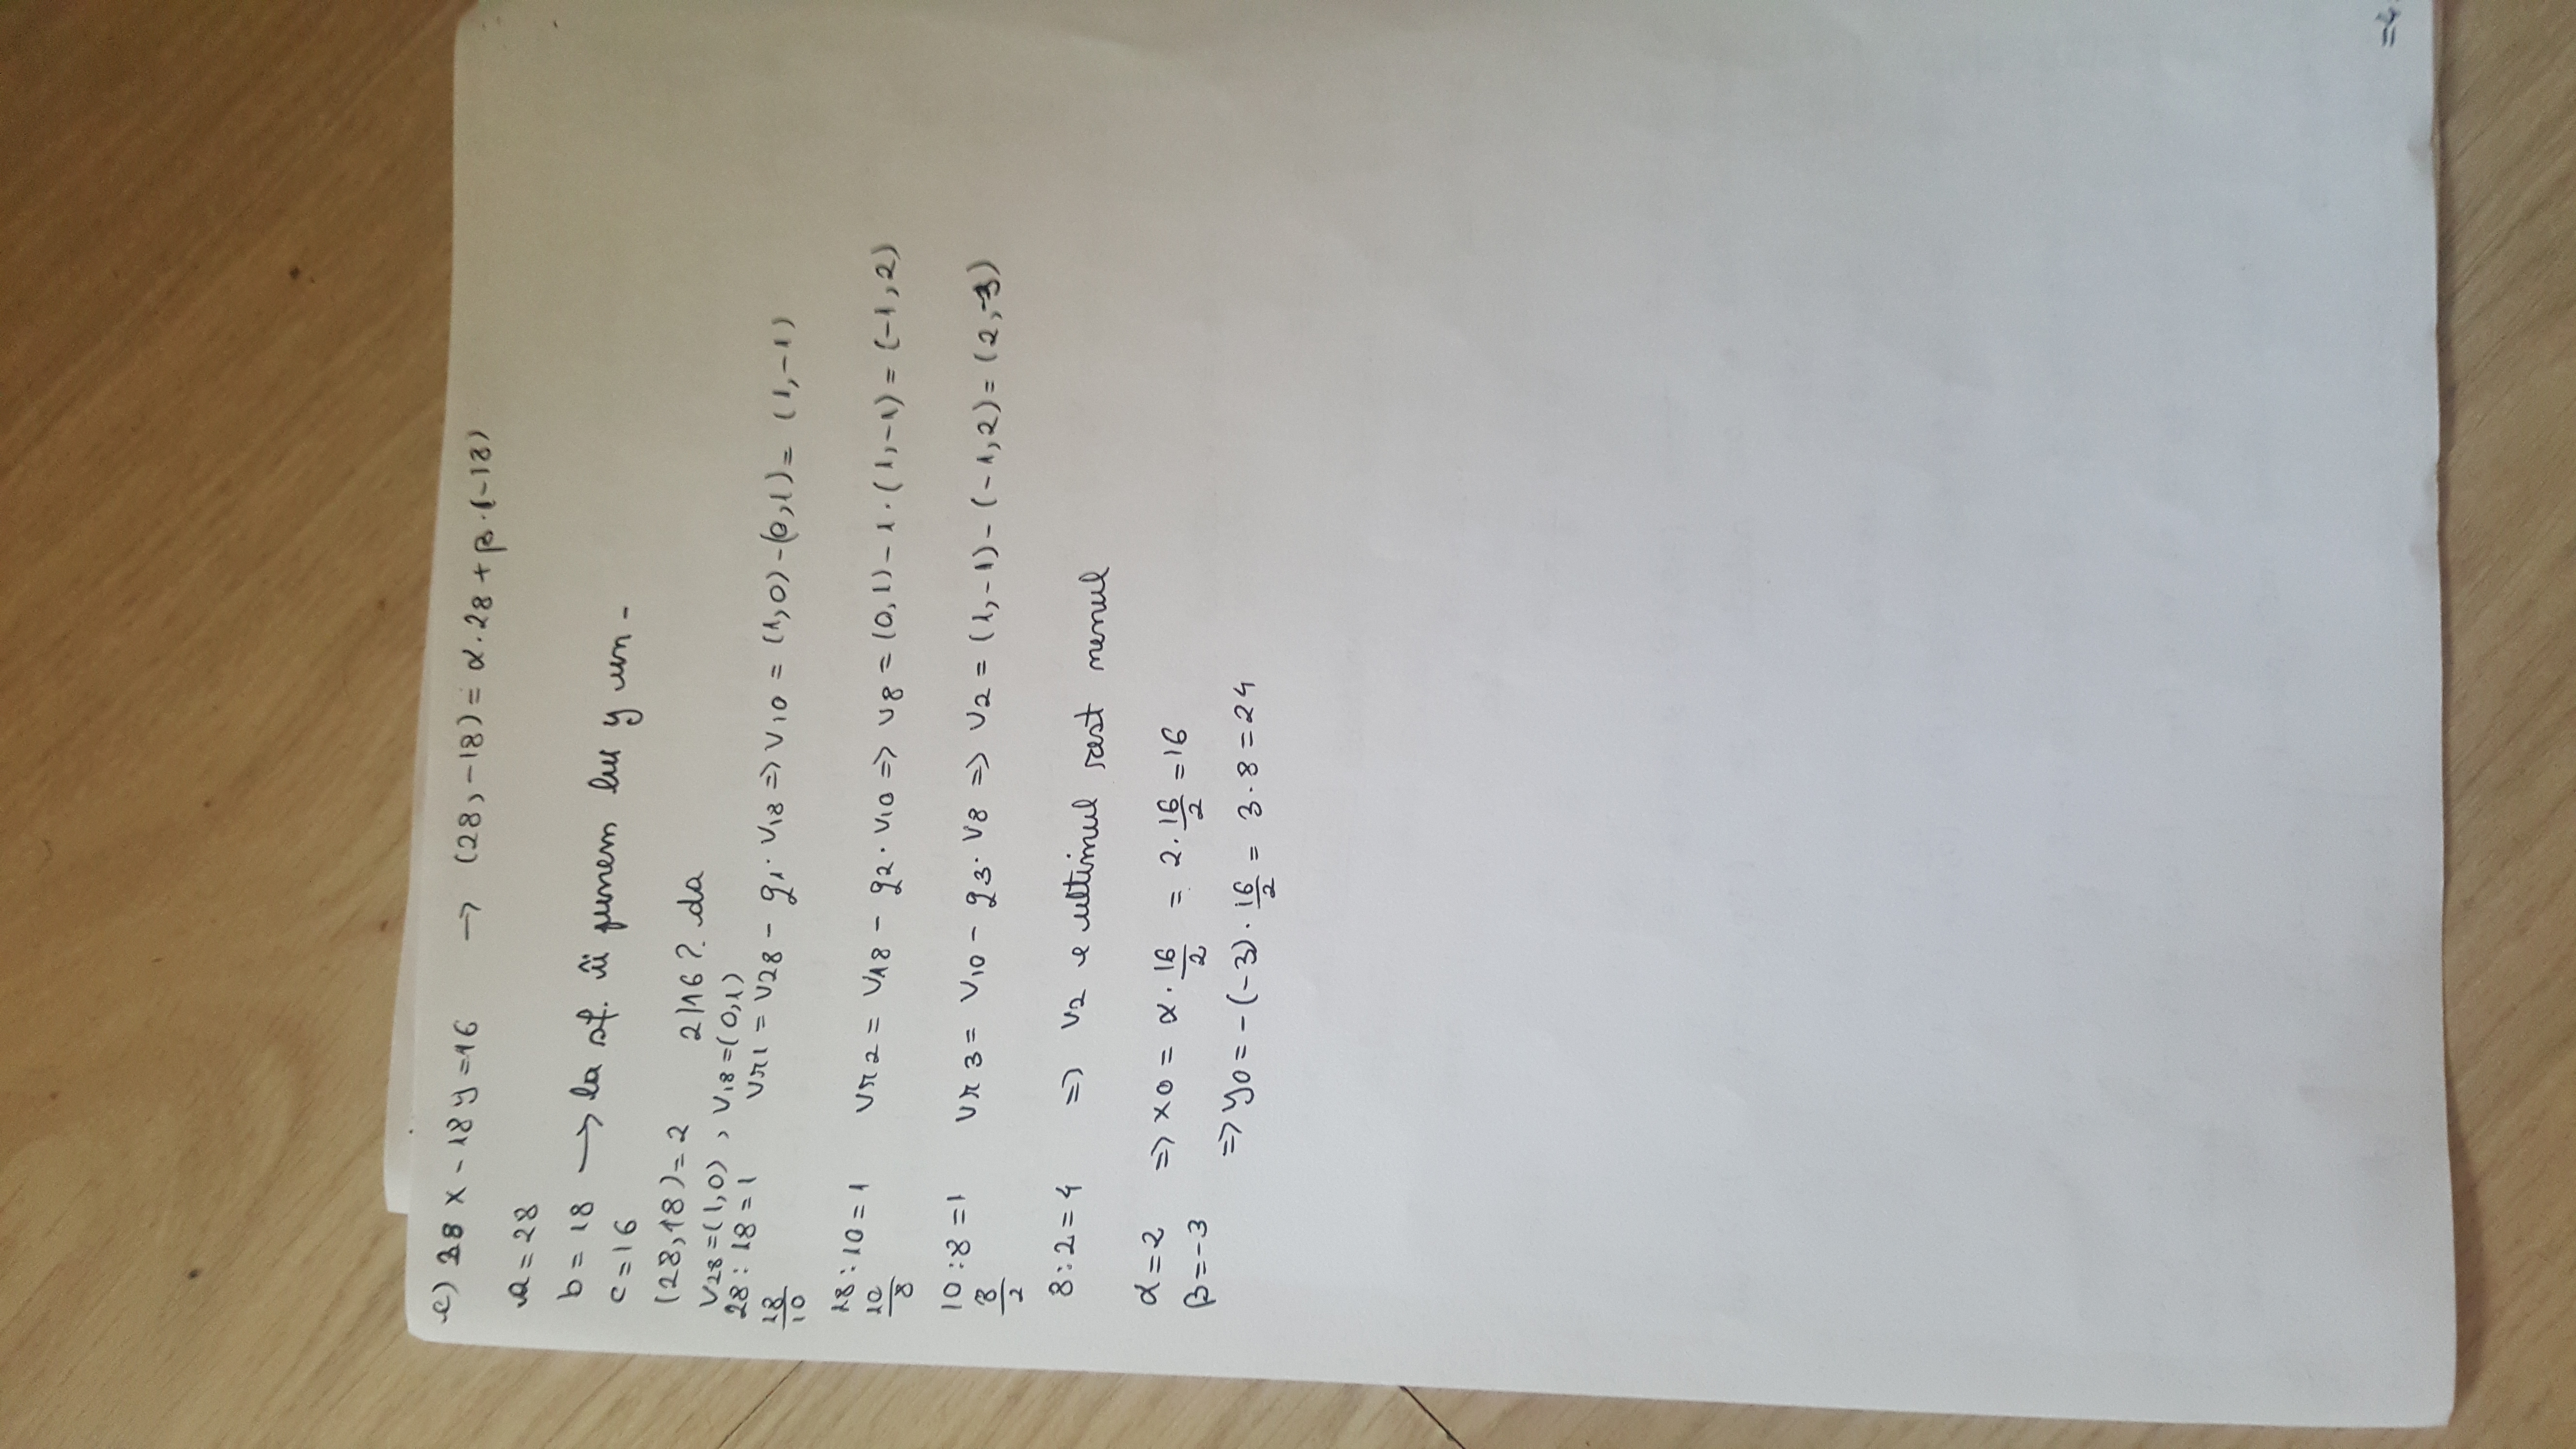 c) 38 x - 18 y = 16 → (28, -18) = α · 28 + β · (-18)
a = 28
b = 18 → la sf. îi punem lui y un -
c = 16
(28, 18) = 2 2|16 ? da
V28 = (1, 0) , V18 = (0, 1)
28 : 18 = 1 Vr1 = V28 - q1 · V18 => V10 = (1, 0) - (0, 1) = (1, -1)
18
10
18 : 10 = 1 Vr2 = V18 - q2 · V10 => V8 = (0, 1) - 1 · (1, -1) = (-1, 2)
10
8
10 : 8 = 1 Vr3 = V10 - q3 · V8 => V2 = (1, -1) - (-1, 2) = (2, -3)
8
2
8 : 2 = 4 => V2 e ultimul rest nenul
α = 2 => x0 = α · 16/2 = 2 · 16/2 = 16
β = -3
=> y0 = -(-3) · 16/2 = 3 · 8 = 24